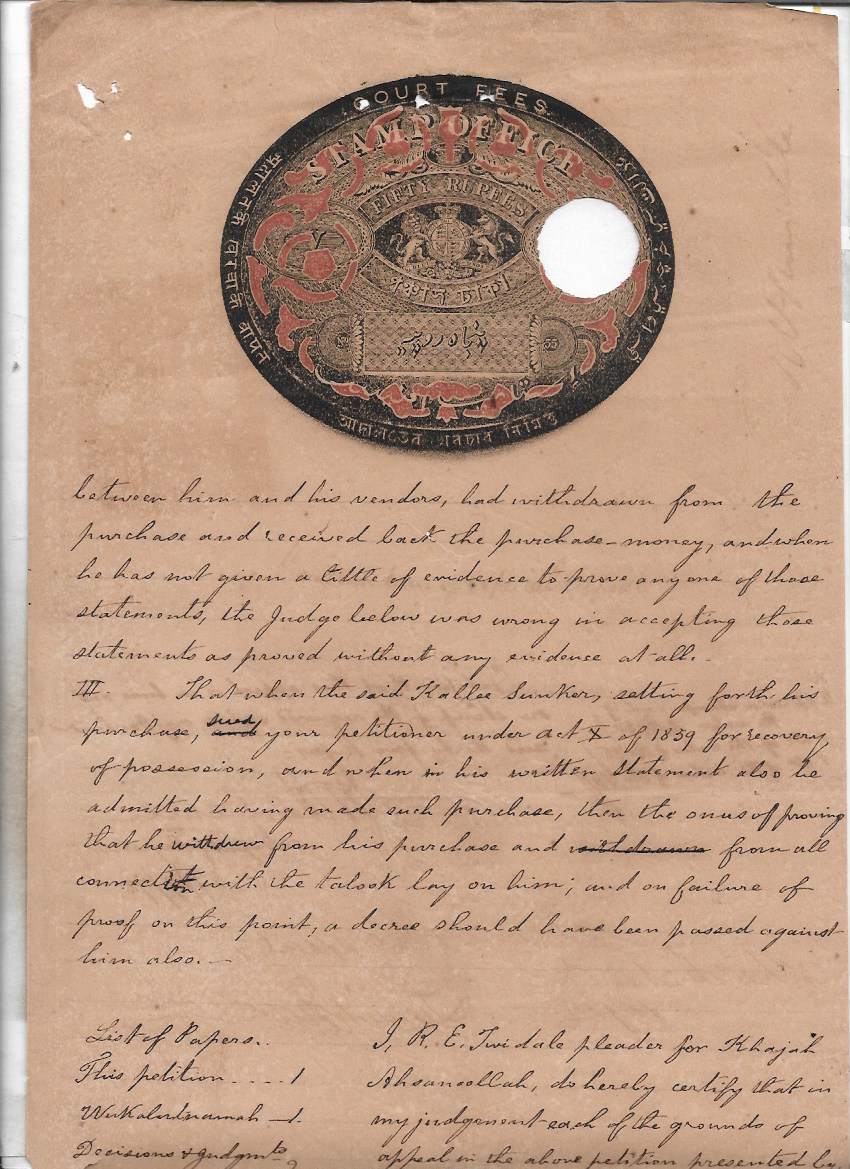 COURT FEES
STAMP OFFICE
FIFTY RUPEES
পঞ্চাশ টাকা
between him and his vendors, had withdrawn from the
purchase and received back the purchase-money, and when
he has not given a tittle of evidence to prove any one of those
statements, the Judge below was wrong in accepting those
statements as proved without any evidence at all.-
III. That when the said Kallee Sunker, setting forth his
purchase, sued your petitioner under act X of 1859 for recovery
of possession, and when in his written statement also he
admitted having made such purchase, then the onus of proving
that he withdrew from his purchase and withdrawn from all
connection with the talook lay on him; and on failure of
proof on this point, a decree should have been passed against
him also.—
List of Papers..
I, R. E. Twidale pleader for Khajah
This petition....1
Ahsanoollah, do hereby certify that in
Wukalutnamah —1.
my judgement each of the grounds of
Decisions & Judgmts
appeal in the above petition presented by